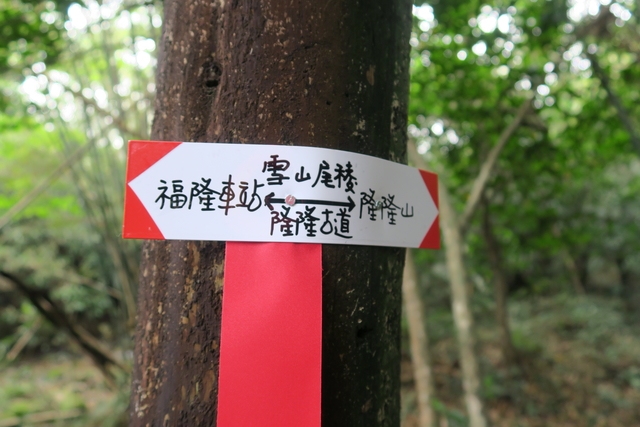 雪山尾稜
福隆車站 ←→ 隆隆山
隆隆古道